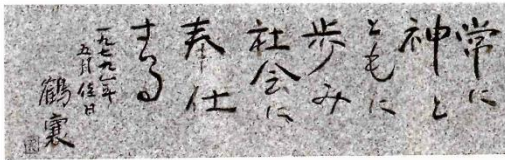 常に
神と
ともに
歩み
社会に
奉仕
する
一九七九年
五月佳日
鶴襄